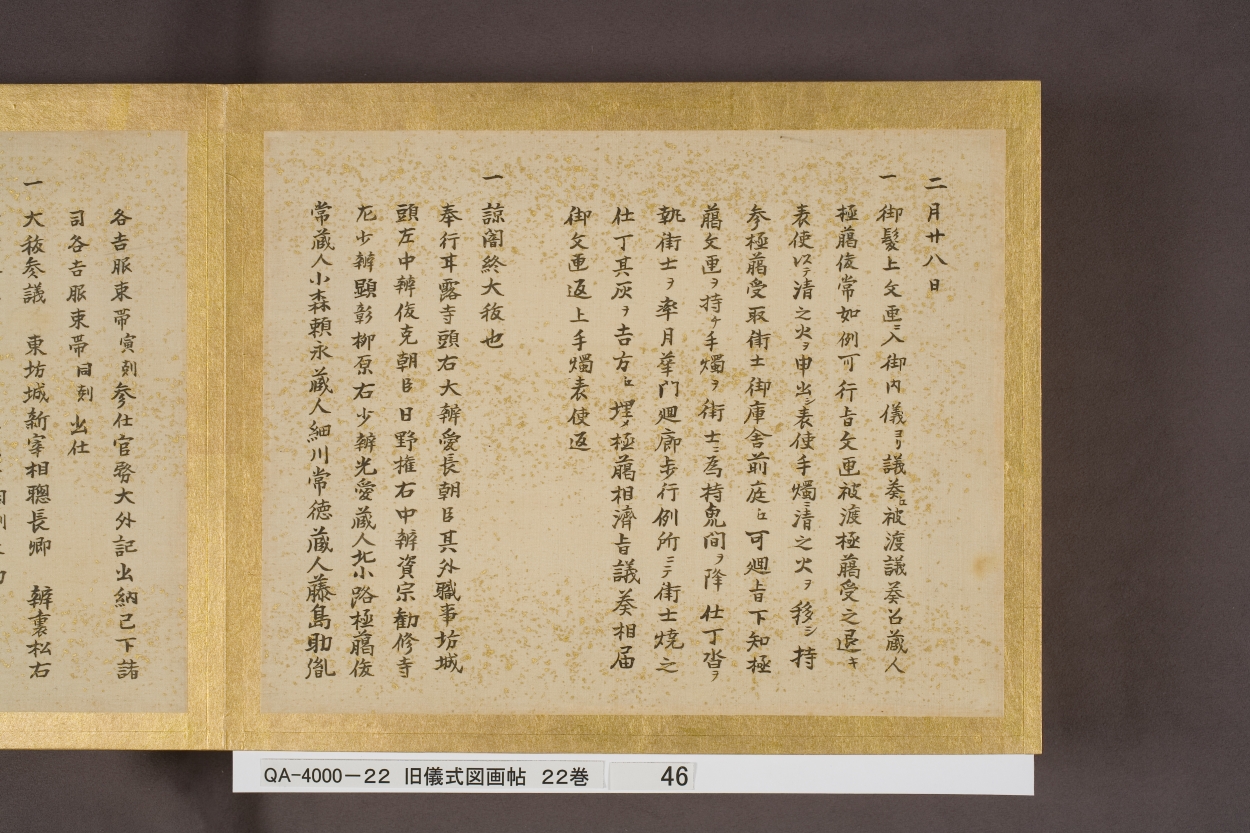 二月廿八日
一 御髪上文匣ニ入御内儀ヨリ議奏ヱ被渡議奏召蔵人
極﨟俊常如例可行旨文匣被渡極﨟受之退キ
表使以テ清之火ヲ申出シ表使手燭ニ清之火ヲ移シ持
参極﨟受取衛士御庫舎前庭ヱ可廻旨下知極
﨟文匣ヲ持チ手燭ヲ衛士ニ為持鬼間ヲ降仕丁沓ヲ
献衛士ヲ率月華門廻廊歩行例所ニテ衛士焼之
仕丁其灰ヲ吉方ヱ埋メ極﨟相濟旨議奏相届
御文匣返上手燭表使返
一 諒闇終大祓也
奉行甘露寺頭右大辨愛長朝臣其外職事坊城
頭左中辨俊克朝臣日野権右中辨資宗勧修寺
左少辨顕彰柳原右少辨光愛蔵人北小路極﨟俊
常蔵人小森頼永蔵人細川常徳蔵人藤島助胤
各吉服束帯寅刻参仕官務大外記出納已下諸
司各吉服束帯同刻出仕
一 大祓参議 東坊城新宰相聰長卿 辨裏松右
QA-4000-22 旧儀式図画帖 22巻 46